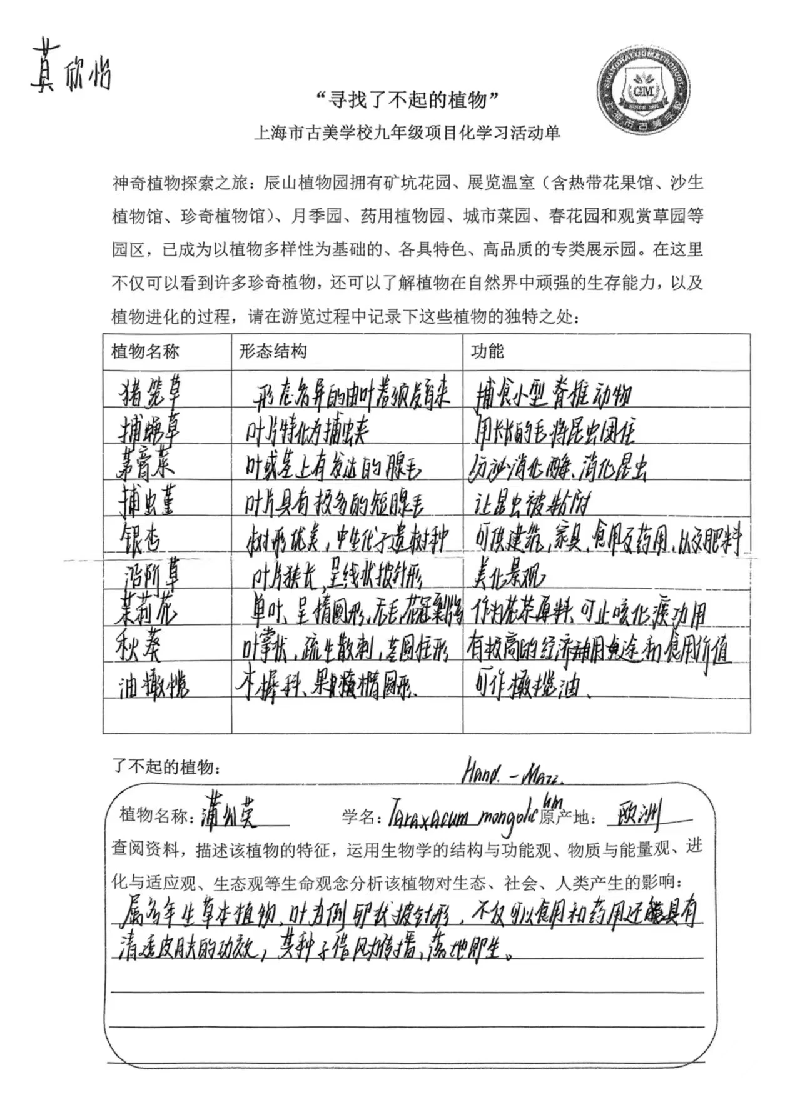 莫欣怡
“寻找了不起的植物”
上海市古美学校九年级项目化学习活动单
GM
神奇植物探索之旅：辰山植物园拥有矿坑花园、展览温室（含热带花果馆、沙生
植物馆、珍奇植物馆）、月季园、药用植物园、城市菜园、春花园和观赏草园等
园区，已成为以植物多样性为基础的、各具特色、高品质的专类展示园。在这里
不仅可以看到许多珍奇植物，还可以了解植物在自然界中顽强的生存能力，以及
植物进化的过程，请在游览过程中记录下这些植物的独特之处：
植物名称 形态结构 功能
猪笼草 形态各异的由叶卷须发育来 捕食小型脊椎动物
捕蝇草 叶片特化为捕虫夹 用长长的毛将昆虫困住
茅膏菜 叶或茎上有发达的腺毛 分泌消化酶、消化昆虫
捕虫堇 叶片具有较多的短腺毛 让昆虫被粘附
银杏 树形优美，中生代孑遗树种 可供建筑，家具，食用及药用，以及肥料
沿阶草 叶片狭长，呈线状披针形 美化景观
茉莉花 单叶、呈椭圆形，无毛，花冠裂 作为花茶原料、可止咳化痰功用
秋葵 叶掌状，疏生散刺，茎圆柱形 有较高的经济用途和食用价值
油橄榄 木樨科、果椭圆形. 可作橄榄油、
了不起的植物：
Hand. - Mazz.
植物名称：蒲公英 学名：Taraxacum mongolicum 原产地：欧洲
查阅资料，描述该植物的特征，运用生物学的结构与功能观、物质与能量观、进
化与适应观、生态观等生命观念分析该植物对生态、社会、人类产生的影响：
属多年生草本植物，叶为倒卵状披针形，不仅可以食用和药用还具有
清透皮肤的功效，其种子借风力传播，落地即生。